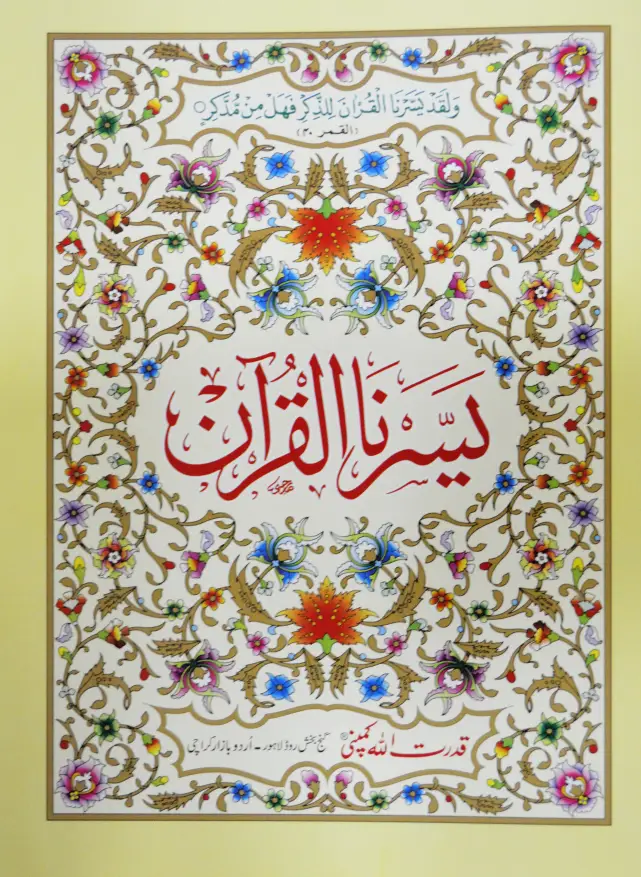 وَلَقَدْ يَسَّرْنَا الْقُرْاٰنَ لِلذِّكْرِ فَهَلْ مِنْ مُّدَّكِرٍ ○
(القمر ۴۰)
يَسَّرْنَا الْقُرْآنَ
قدرت اللہ کمپنی ® گنج بخش روڈ لاہور ۔ اُردو بازار کراچی